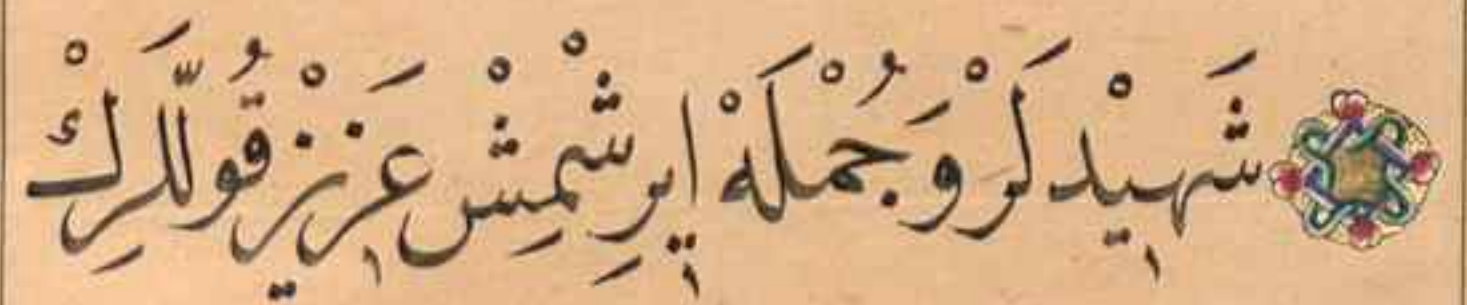 شَهِيْدلَرْ وَ جُمْلَهْ اٖيرِشْمِشْ عَزٖيزْ قُوللَّرِكْ